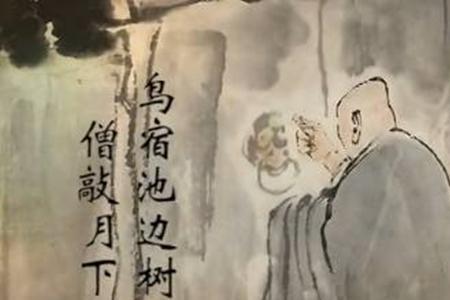 鸟宿池边树
僧敲月下